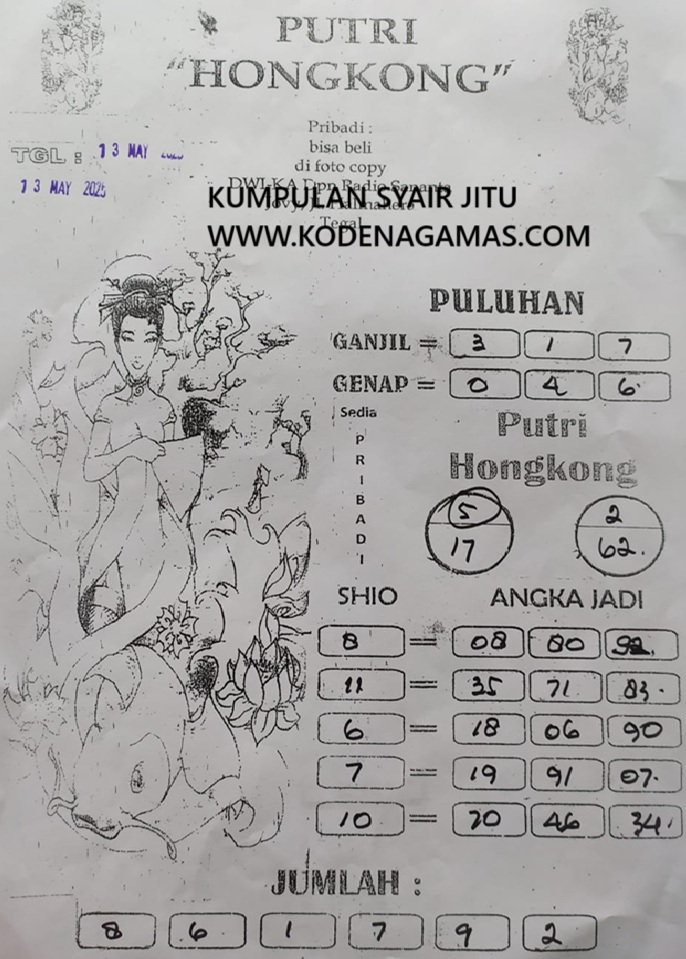 PUTRI
"HONGKONG"
Pribadi :
bisa beli
di foto copy
TGL : 13 MAY
13 MAY 2025
KUMPULAN SYAIR JITU
WWW.KODENAGAMAS.COM
Tegal
PULUHAN
GANJIL = 3 1 7
GENAP = 0 4 6.
Sedia
PRIBADI
Putri
Hongkong
5 2
17 62.
SHIO ANGKA JADI
8 = 08 80 92.
11 = 35 71 83.
6 = 18 06 90
7 = 19 91 07.
10 = 70 46 34.
JUMLAH :
8 6 1 7 9 2